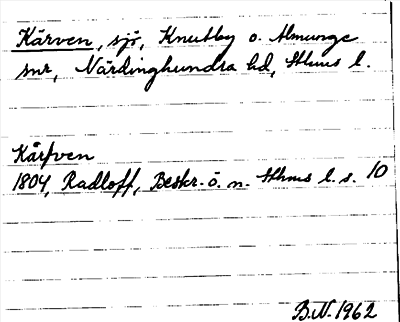 Kärven, sjö, Knutby o. Almunge
snr, Närdinghundra hd, Sthms l.
Kärfven
1804, Radloff, Beskr. ö. n. Sthms l. s. 10
B.N. 1962